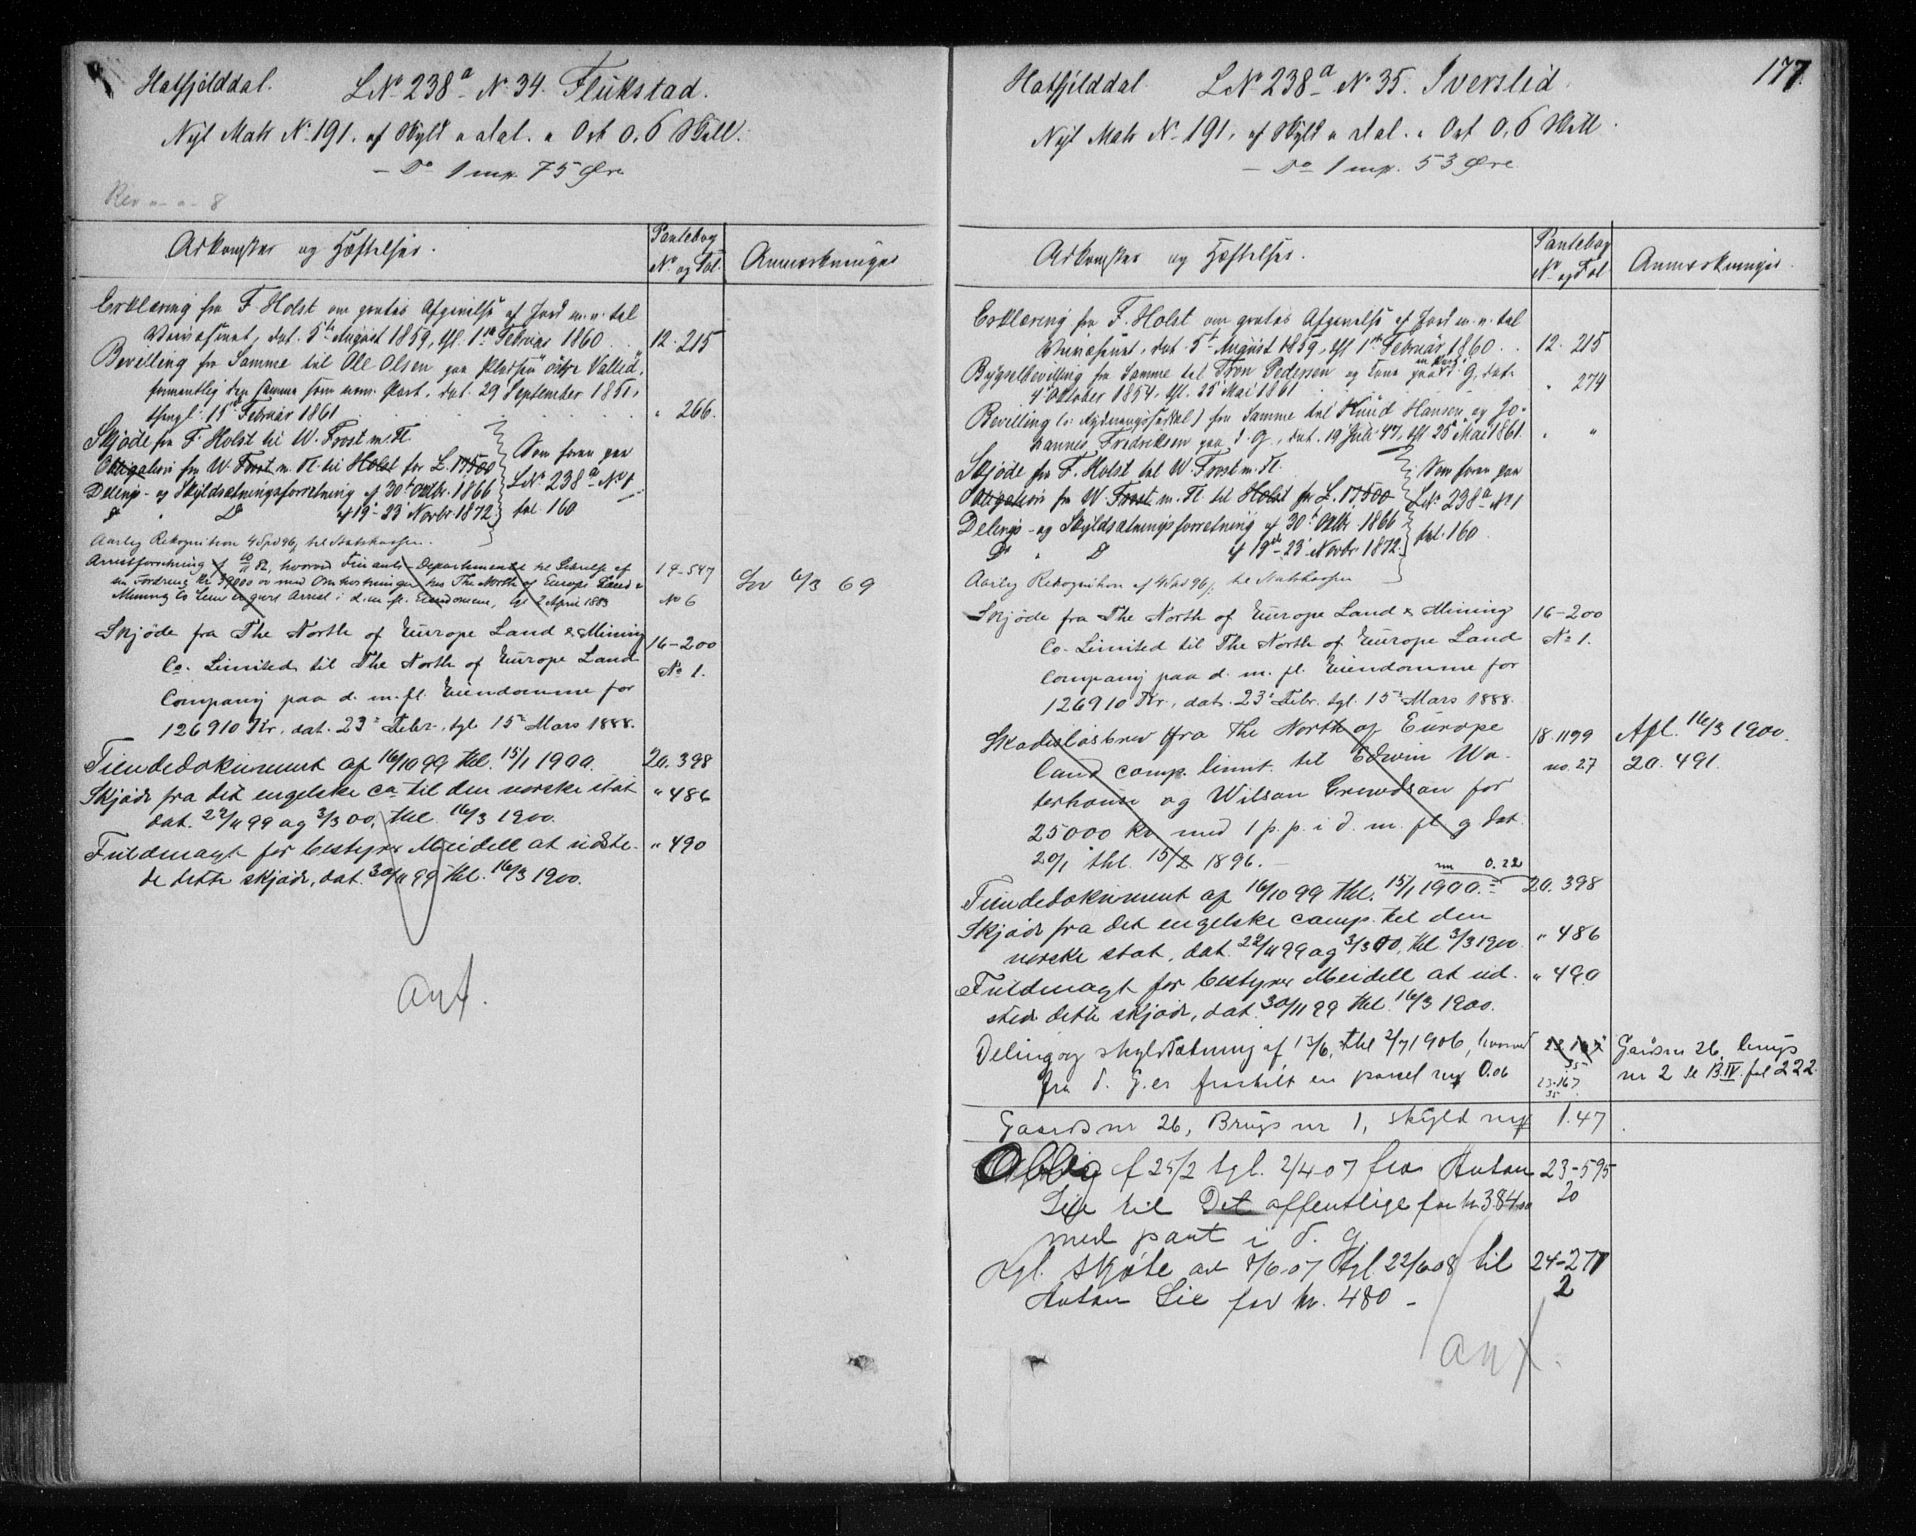 Hatfjelddal. LNo 238a No 34. Flukstad.
Nyt Matr No 191. af Skyld " Dal. " Ort 0,6 Skill.
— Do 1 mrk. 75 Øre
Adkomster og Hæftelser.
Pantebog
No og Fol.
Anmærkninger
Erklæring fra F. Holst om gratis Afgivelse af Jord m. v. til
Veivæsenet, dat. 5te August 1859, tgl. 1ste Februar 1860. 12. 215
Bevilling fra Samme til Ole Olsen paa Pladsen øvre Vallid,
formentlig den samme som nærv. Part, dat. 29 September 1851,
thingl. 15 Februar 1861 " 266.
Skjøde fra F. Holst til W. Frost m. Fl.
Obligation fra W. Frost m. Fl. til Holst for L. 17500
Delings- og Skyldsætningsforretning af 30te Oktbr. 1866
Do " Do af 19-23 Novbr. 1872
Som foran paa
LNo 238a No 1
fol. 160
Aarlig Rekognition 4 Spd 96 til Statskassen.
Arrestforretning af 82, hvorved Finants-Departementet til Sikkring af
en Fordring Kr 39000 ov med Omkostninger hos The North of Europe Land &
Mining Co Lim er gjort Arrest i d. m. fl. Eiendomme, tgl 2 April 1883
14-547
No 6
Lov 6/3 69
Skjøde fra The North of Europe Land & Mining
Co. Limited til The North of Europe Land
Company paa d. m. fl. Eiendomme for
126910 Kr, dat. 23de Febr., tgl 15de Mars 1888.
16-200
No 1.
Tiendedokument af 16/10 99 thl. 15/1 1900. 20. 398
Skjøde fra det engelske co til den norske stat
dat. 22/11 99 og 3/3 00, thl. 16/3 1900. " 486
Fuldmagt for bestyrer Meidell at udste-
de dette skjøde, dat. 30/11 99 thl. 16/3 1900. " 490
anf.
177.
Hatfjelddal. LNo 238a No 35. Iverslid.
Nyt Matr No 191. af Skyld " Dal. " Ort 0,6 Skill.
— Do 1 mrk. 53 Øre
Adkomster og Hæftelser.
Pantebog
No og Fol
Anmærkninger.
Erklæring fra F. Holst om gratis Afgivelse af Jord m. v. til
Veivæsenet, dat. 5te August 1859, tgl 1ste Februar 1860. 12. 215
Bygselbevilling fra Samme til Tron Pedersen og Kone paa d. G, dat.
4 Oktober 1854, tgl. 25 Mai 1861 " 274
Bevilling (o: Rydningsseddel) fra Samme til Knud Hansen og Jo-
hannes Fredriksen paa d. G., dat. 19 Juli 47, tgl 25 Mai 1861. " "
Skjøde fra F. Holst til W. Frost m. Fl.
Obligation fra W. Frost m. Fl til Holst for L. 17500
Delings- og Skyldsætningsforretning af 30te Oktbr. 1866
Do " Do af 19de-23 Novbr. 1872.
Som foran paa
LNo 238a No 1
fol. 160
Aarlig Rekognition af 4 Spd 96 til Statskassen
Skjøde fra The North of Europe Land & Mining
Co. Limited til The North of Europe Land
Company paa d. m. fl. Eiendomme for
126910 Kr, dat. 23de Febr., tgl. 15de Mars 1888.
16-200
No 1.
Skadesløsbrev fra the North of Europe
land comp. limt. til Edwin Wa-
terhouse og Wilson Crewdson for
25000 kr. med 1 p. p. i d. m. fl. g dat.
20/1 thl. 15/2 1896.
18. 1199
no. 27
Afl. 16/3 1900.
20. 491.
Tiendedokument af 16/10 99 thl. 15/1 1900. 20. 398
Skjøde fra det engelske comp. til den
norske stat, dat. 22/11 99 og 3/3 00, thl 3/3 1900 " 486
Fuldmagt for bestyrer Meidell at ud-
stede dette skjøde, dat. 30/11 99 thl. 16/3 1900. " 490
Deling og skyldsætning af 13/6, thl 2/7 1906, hvorved
fra d. G. er fraskilt en parcel mrk 0.06
23. 167
35
Gaardsnr 26, brugs
nr 2 se B. IV. fol 222.
Gaardsnr 26, Brugsnr 1, skyld mrk 1.47
Oblig af 25/2 tgl. 2/4 07 fra Anton
Lie til Det offentlige for kr 384.00
med pant i d. g.
23-595
20
Kgl. skjøte av 7/6 07 tgl. 22/6 08 til
Anton Lie for kr. 480 -
24-271
2
anf.